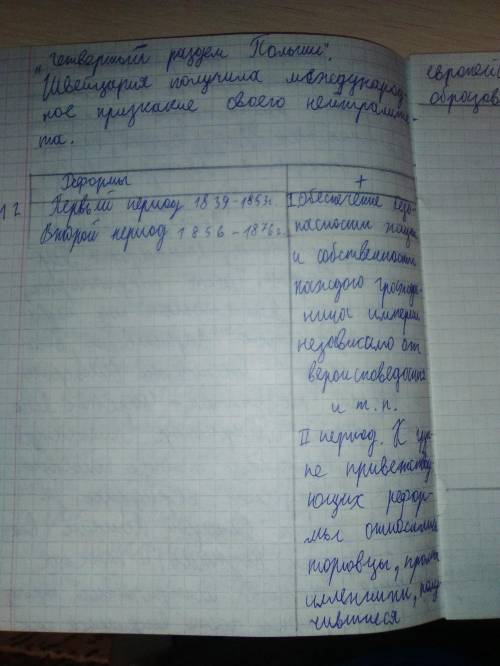 "четвертый раздел Польши".
Швейцария получила международ-
ное признание своего нейтралите-
та.
Реформы
+
12
Первый период 1839-1853г.
Второй период 1856-1876г.
I Обеспечение безо-
пасности жизни
и собственности
каждого гражда-
нина империи
независимо от
вероисповедания
и т.п.
II период. К груп-
пе приветству-
ющих рефор-
мы относились
торговцы, промы
шленники, полу
чившиеся
европей
образов